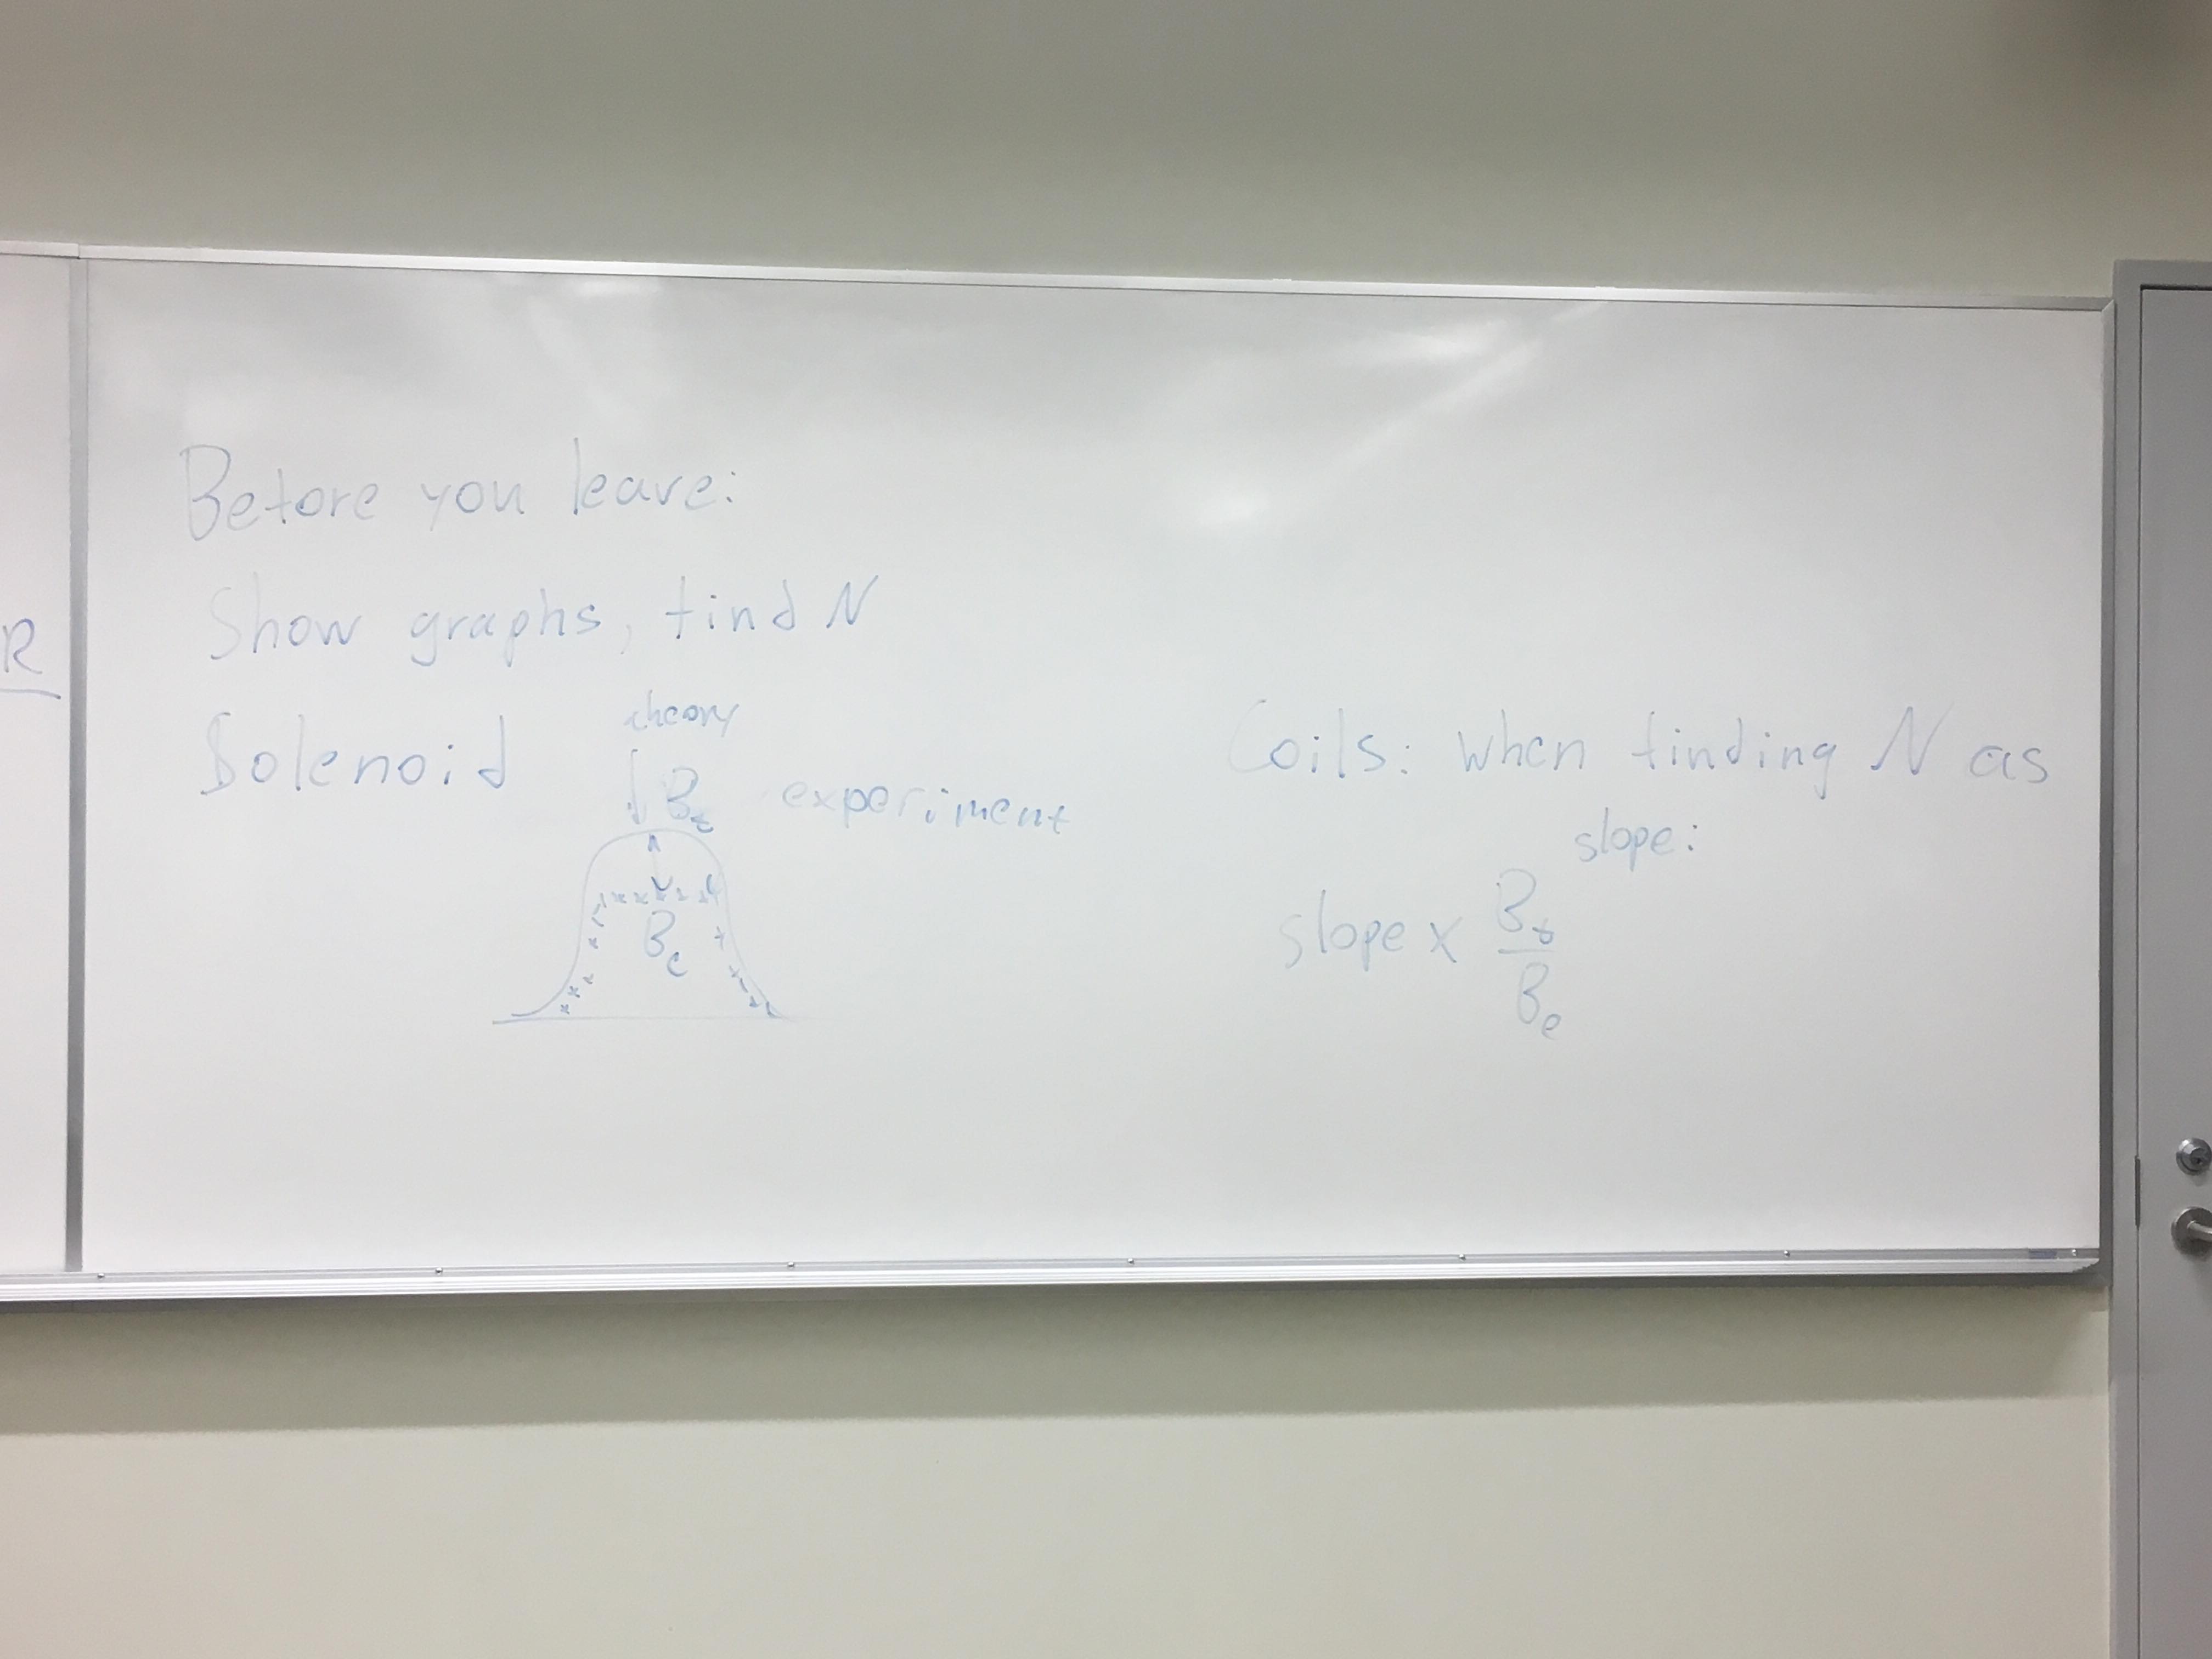 R
Before you leave:
Show graphs, find N
Solenoid
theory
B_t experiment
B_e
Coils: when finding N as
slope:
slope x B_t
B_e